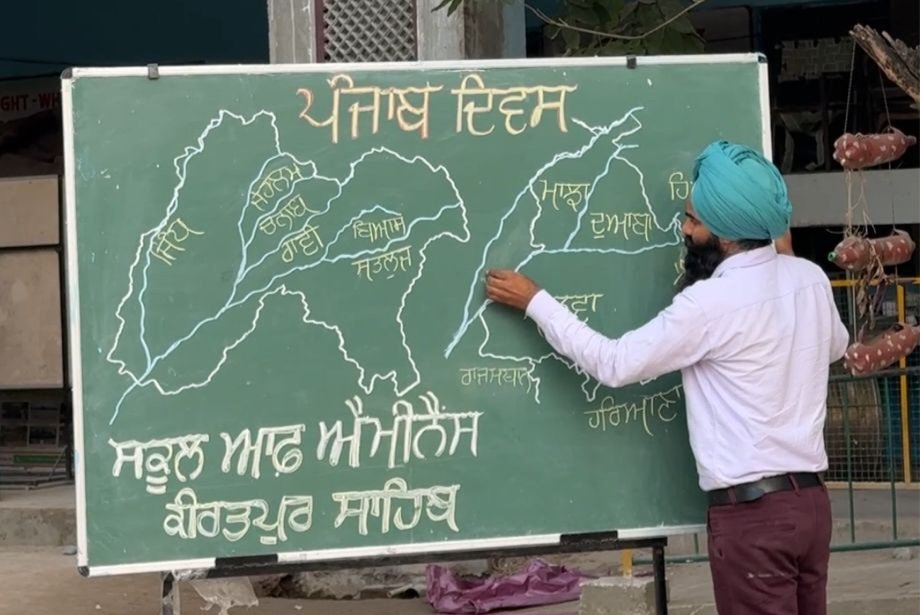 GHT-W
ਪੰਜਾਬ ਦਿਵਸ
ਸਿੰਧ
ਜੇਹਲਮ
ਚਨਾਬ
ਰਾਵੀ
ਬਿਆਸ
ਸਤਲੁਜ
ਮਾਝਾ
ਦੁਆਬਾ
ਹਿ
ਰਾਜਸਥਾਨ
ਹਰਿਆਣਾ
ਸਕੂਲ ਆਫ਼ ਐਮੀਨੈਂਸ
ਕੀਰਤਪੁਰ ਸਾਹਿਬ